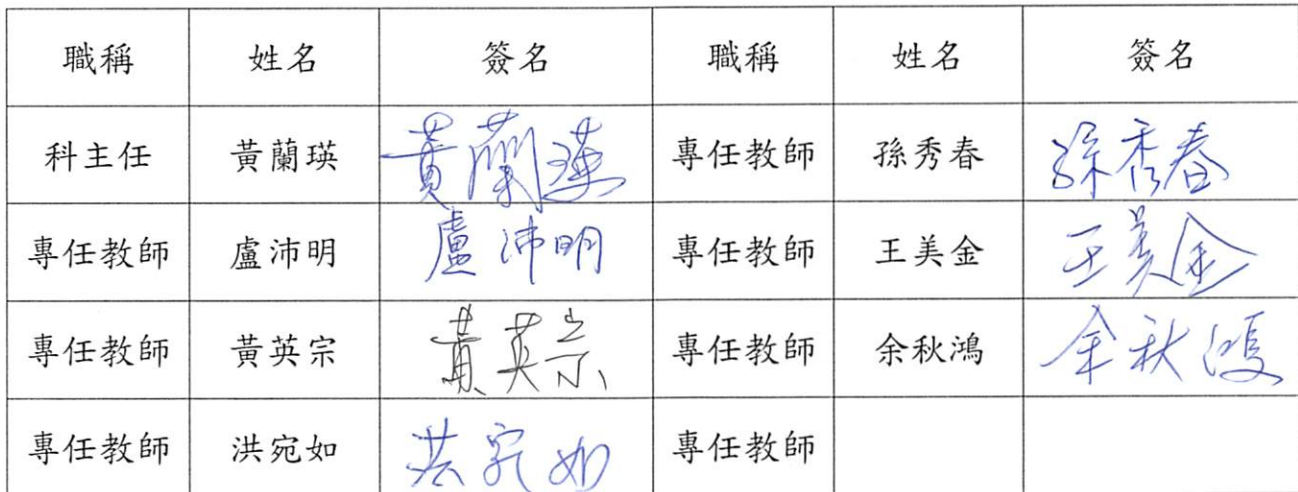 職稱 姓名 簽名 職稱 姓名 簽名
科主任 黃蘭瑛 黃蘭瑛 專任教師 孫秀春 孫秀春
專任教師 盧沛明 盧沛明 專任教師 王美金 王美金
專任教師 黃英宗 黃英宗 專任教師 余秋鴻 余秋鴻
專任教師 洪宛如 洪宛如 專任教師